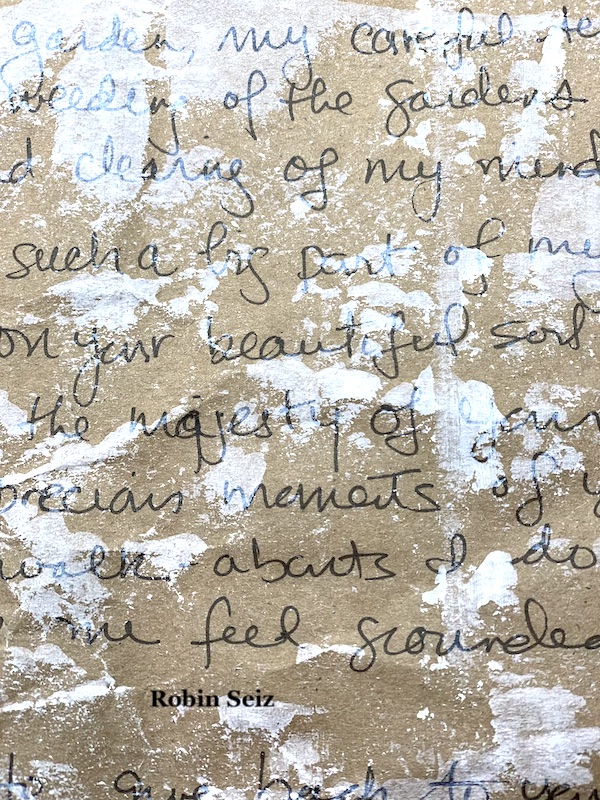 garden, my careful te
weeding of the gardens
nd clearing of my mind
such a big part of my
on your beautiful soil
the majesty of your
precious moments of y
walk abouts I do
me feel grounded
Robin Seiz
give back to you